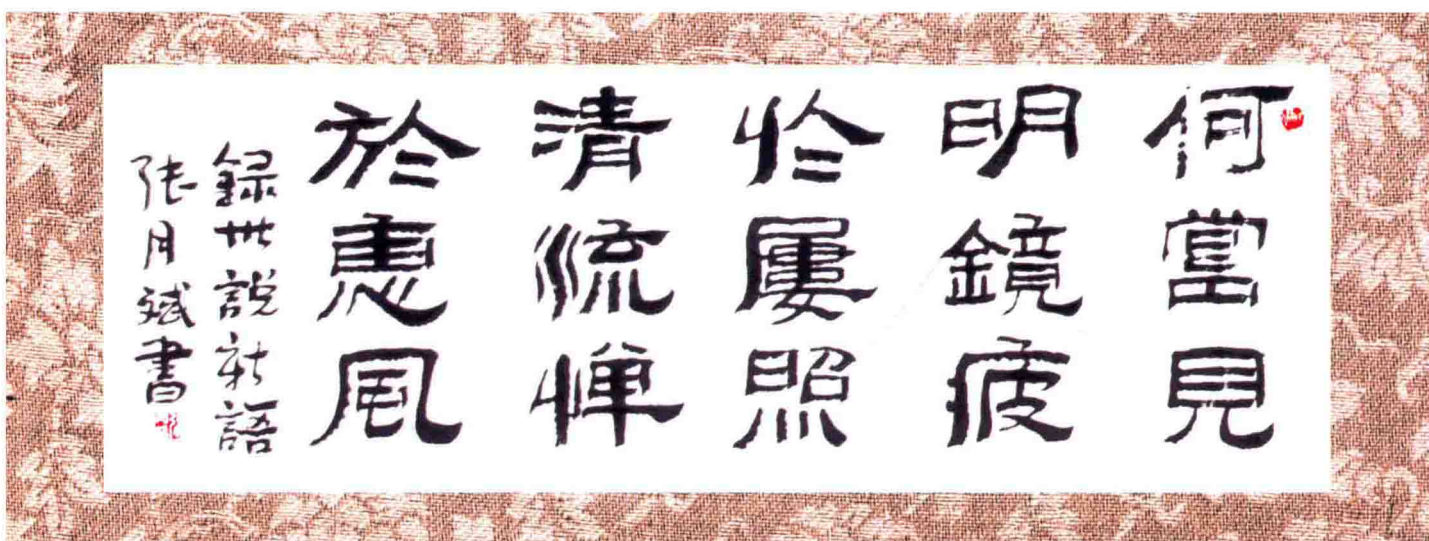 何嘗見
明鏡疲
於屢照
清流惮
於惠風
録世説新語
張月斌書